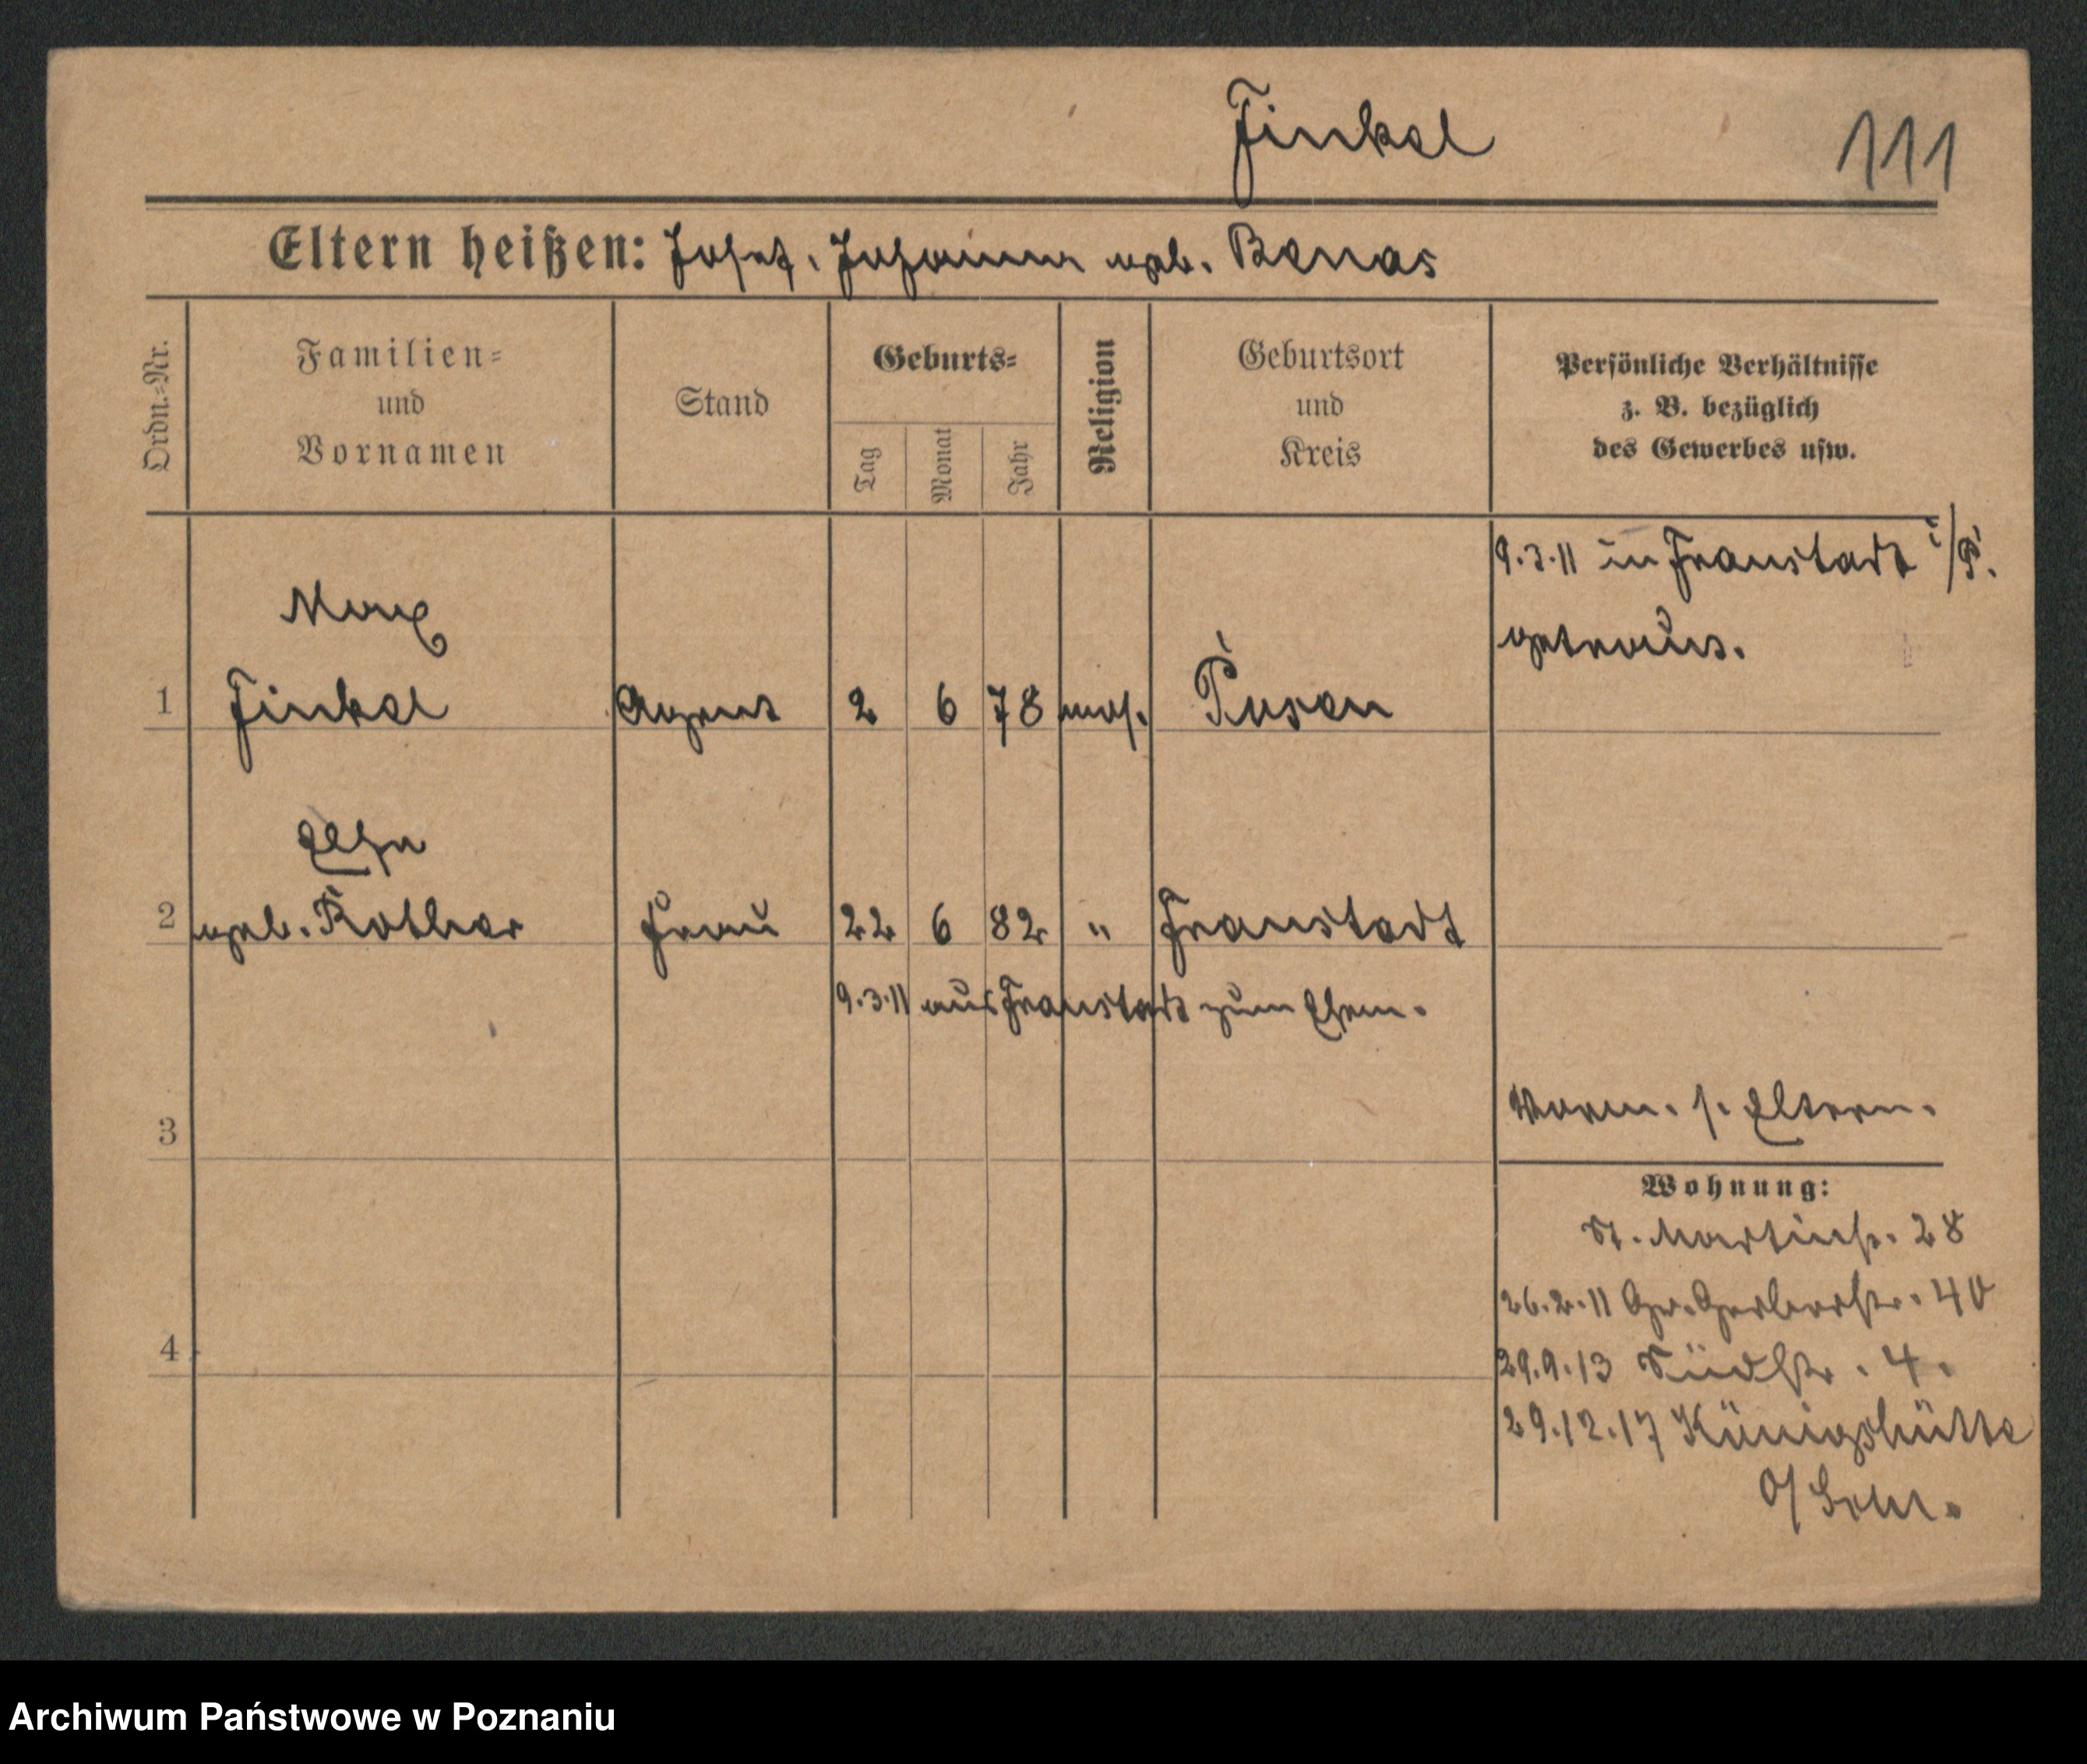 Finkel
111
Eltern heißen: Josef, Johanna geb. Benas
Ordn.=Nr.
Familien=
und
Vornamen
Stand
Geburts=
Tag
Monat
Jahr
Religion
Geburtsort
und
Kreis
Persönliche Verhältnisse
z. B. bezüglich
des Gewerbes usw.
9.3.11 in Fraustadt i/P.
getraut.
Max
1 Finkel Agent 2 6 78 mos. Posen
Elsa
2 geb. Kother Frau 22 6 82 " Fraustadt
9.3.11 aus Fraustadt zum Ehem.
3
Vorm. s. Eltern.
Wohnung:
St. Martinstr. 28
26.2.11 Gr. Gerberstr. 40
4
29.9.13 Südstr. 4.
29.12.17 Königshütte
O/Schl.
Archiwum Państwowe w Poznaniu